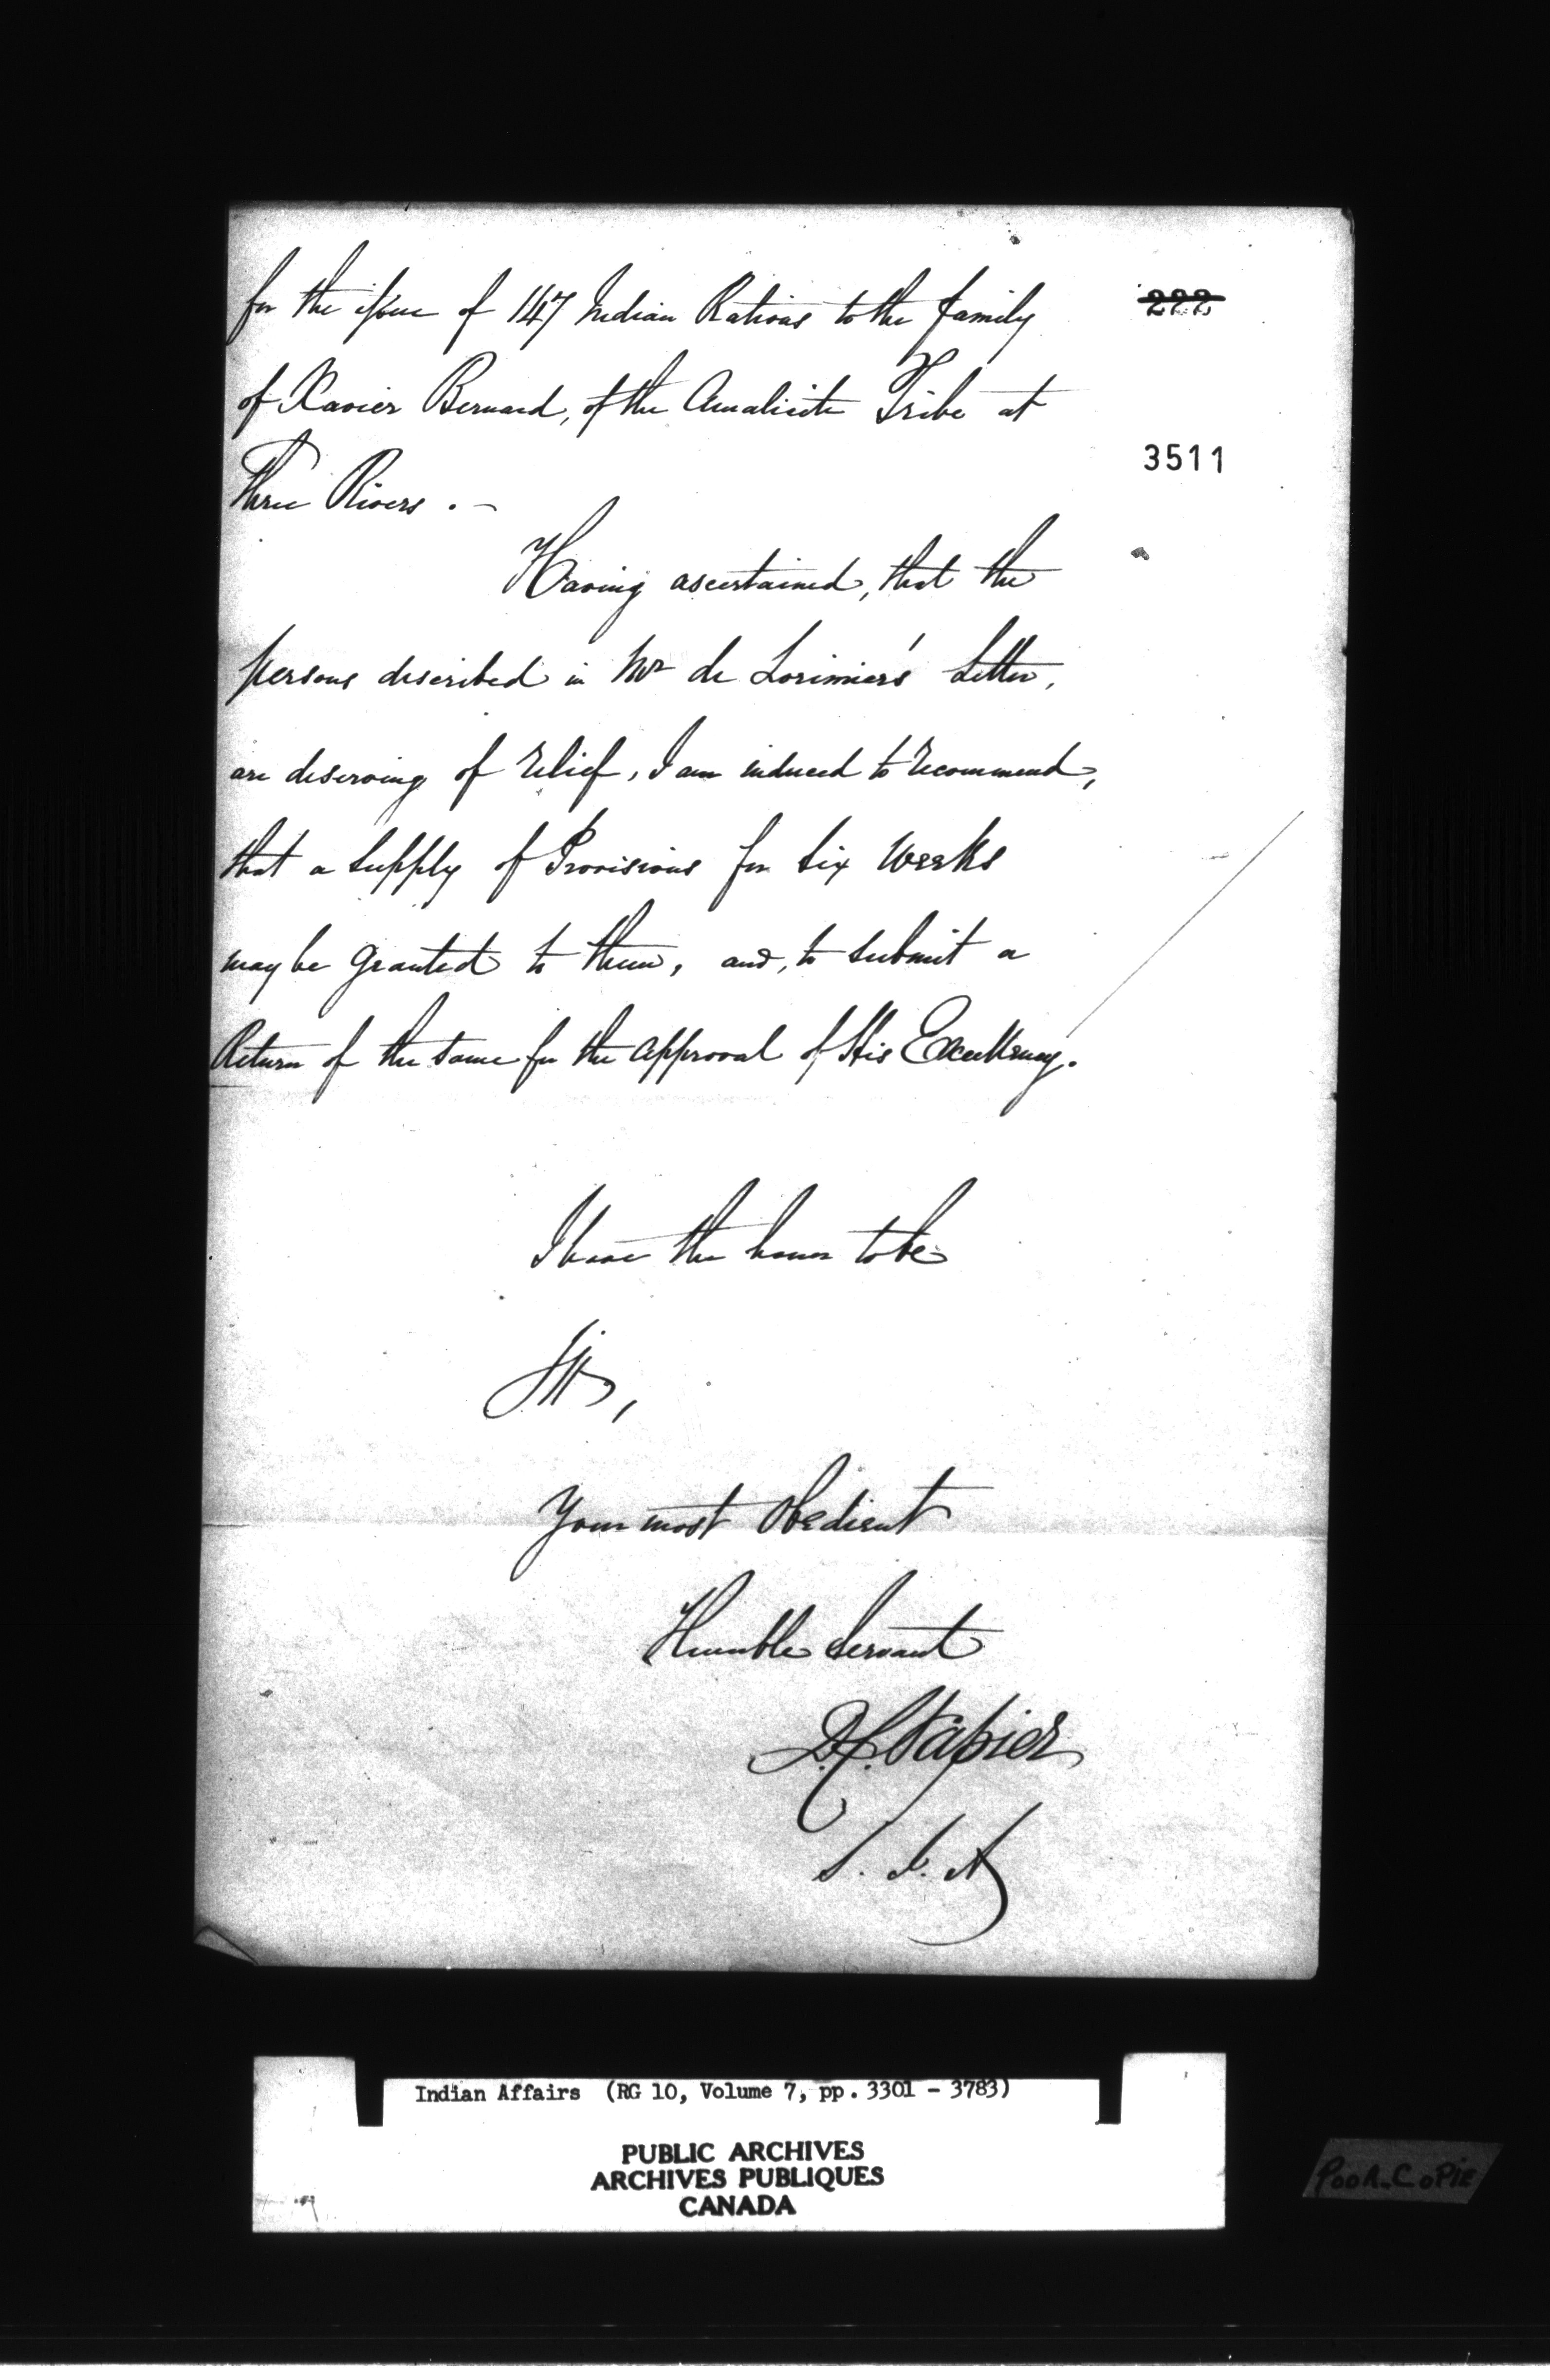 for the issue of 147 Indian Rations to the family
222
of Xavier Bernard, of the Amalicite Tribe at
3511
Three Rivers. -
Having ascertained, that the
persons described in Mr de Lorimier's Letter,
are deserving of relief, I am induced to recommend,
that a supply of Provisions for six weeks
may be granted to them, and, to submit a
Return of the same for the approval of His Excellency.
I have the honor to be
Sir,
Your most obedient
Humble Servant
D.C. Napier
S. I. A
Indian Affairs (RG 10, Volume 7, pp. 3301 - 3783)
PUBLIC ARCHIVES
ARCHIVES PUBLIQUES
CANADA
POOR COPIE